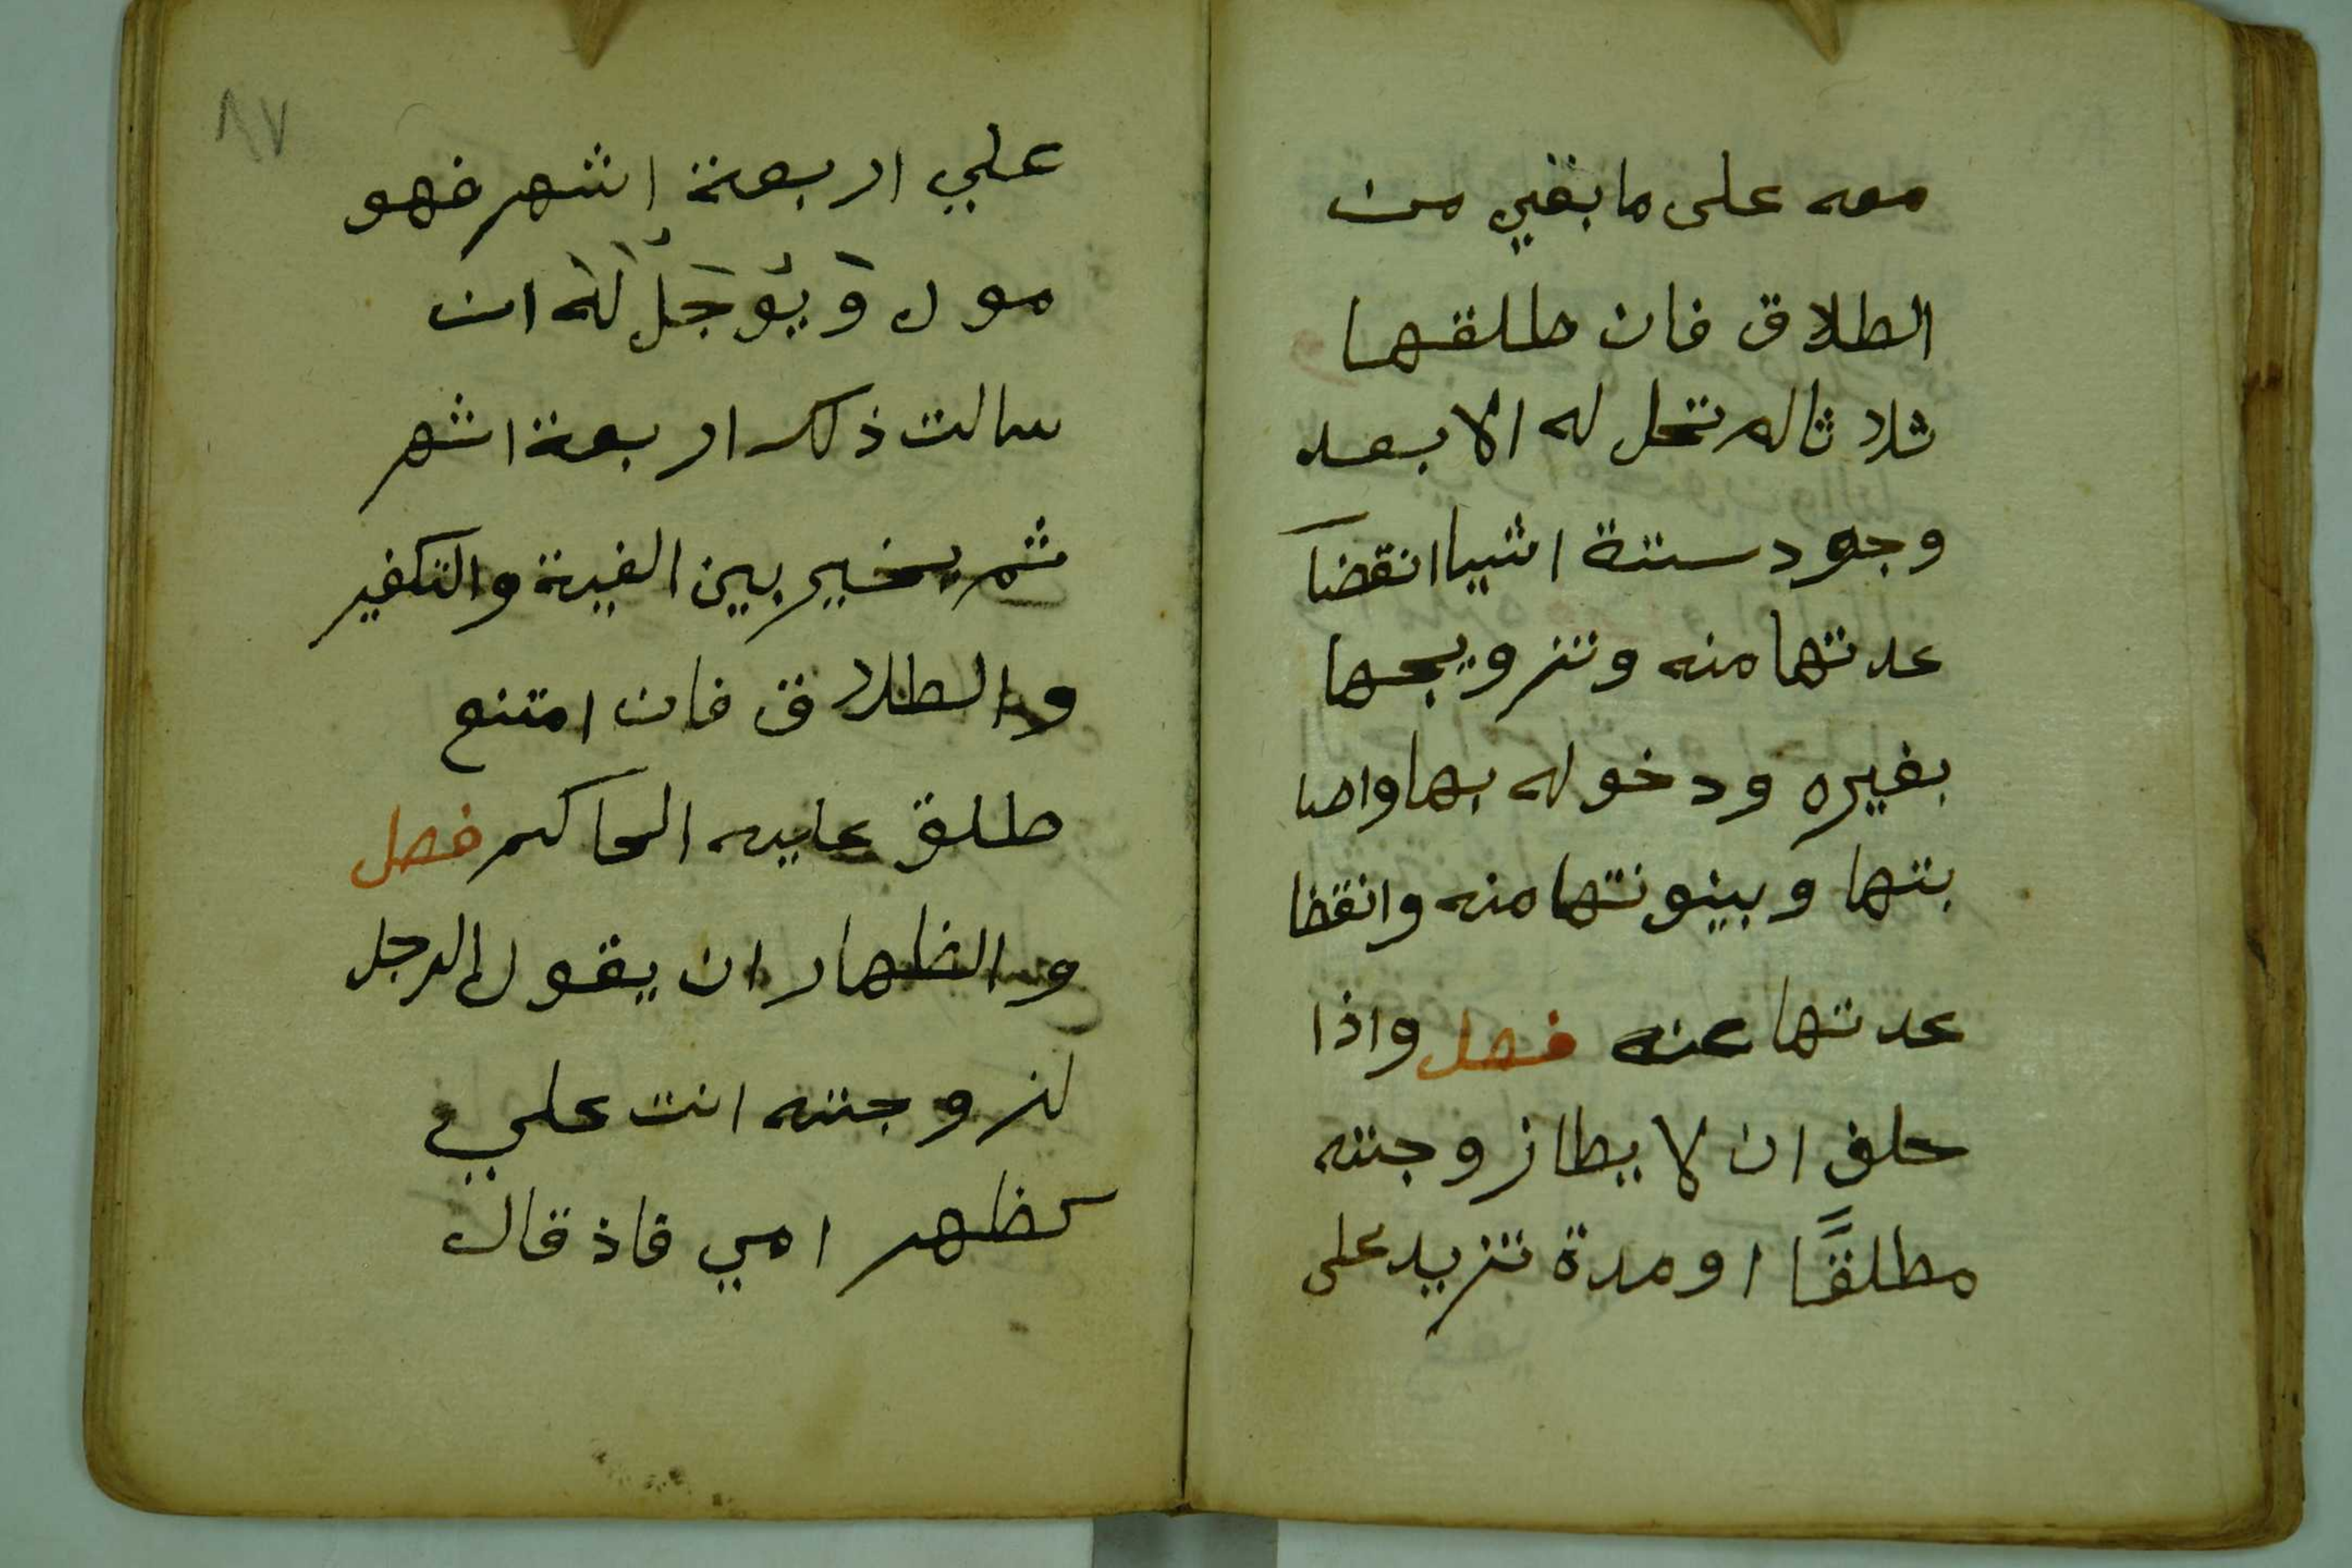 معه على ما بقي من
الطلاق فان طلقها
ثلاثا لم تحل له الا بعد
وجود ستة اشيا انقضا
عدتها منه وتزويجها
بغيره ودخوله بها واصا
بتها وبينونتها منه وانقضا
عدتها عنه فصل واذا
حلف ان لا يطا زوجته
مطلقًا او مدة تزيد على
٨٧
علي اربعة اشهر فهو
مول وَيُوَجَّلُ لَهُ ان
سالت ذلك اربعة اشهر
ثم يخير بين الفية والتكفير
والطلاق فان امتنع
طلق عليه الحاكم فصل
والظهار ان يقول الرجل
لزوجته انت علي
كظهر امي فاذ قال